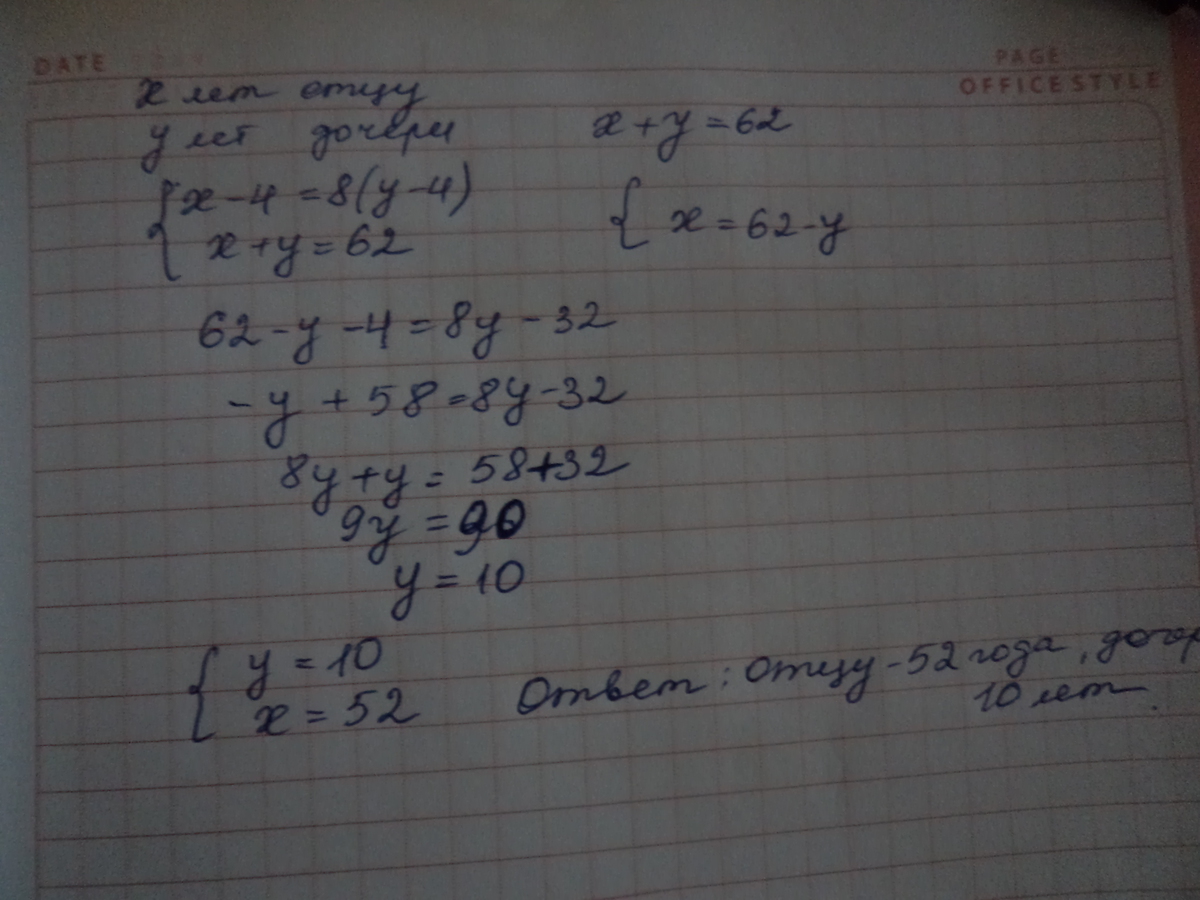 DATE
PAGE
OFFICE STYLE
х лет отцу
у лет дочери
x + y = 62
{ x - 4 = 8(y - 4)
x + y = 62
{ x = 62 - y
62 - y - 4 = 8y - 32
- y + 58 = 8y - 32
8y + y = 58 + 32
9y = 90
y = 10
{ y = 10
x = 52
Ответ: отцу - 52 года, дочер
10 лет.